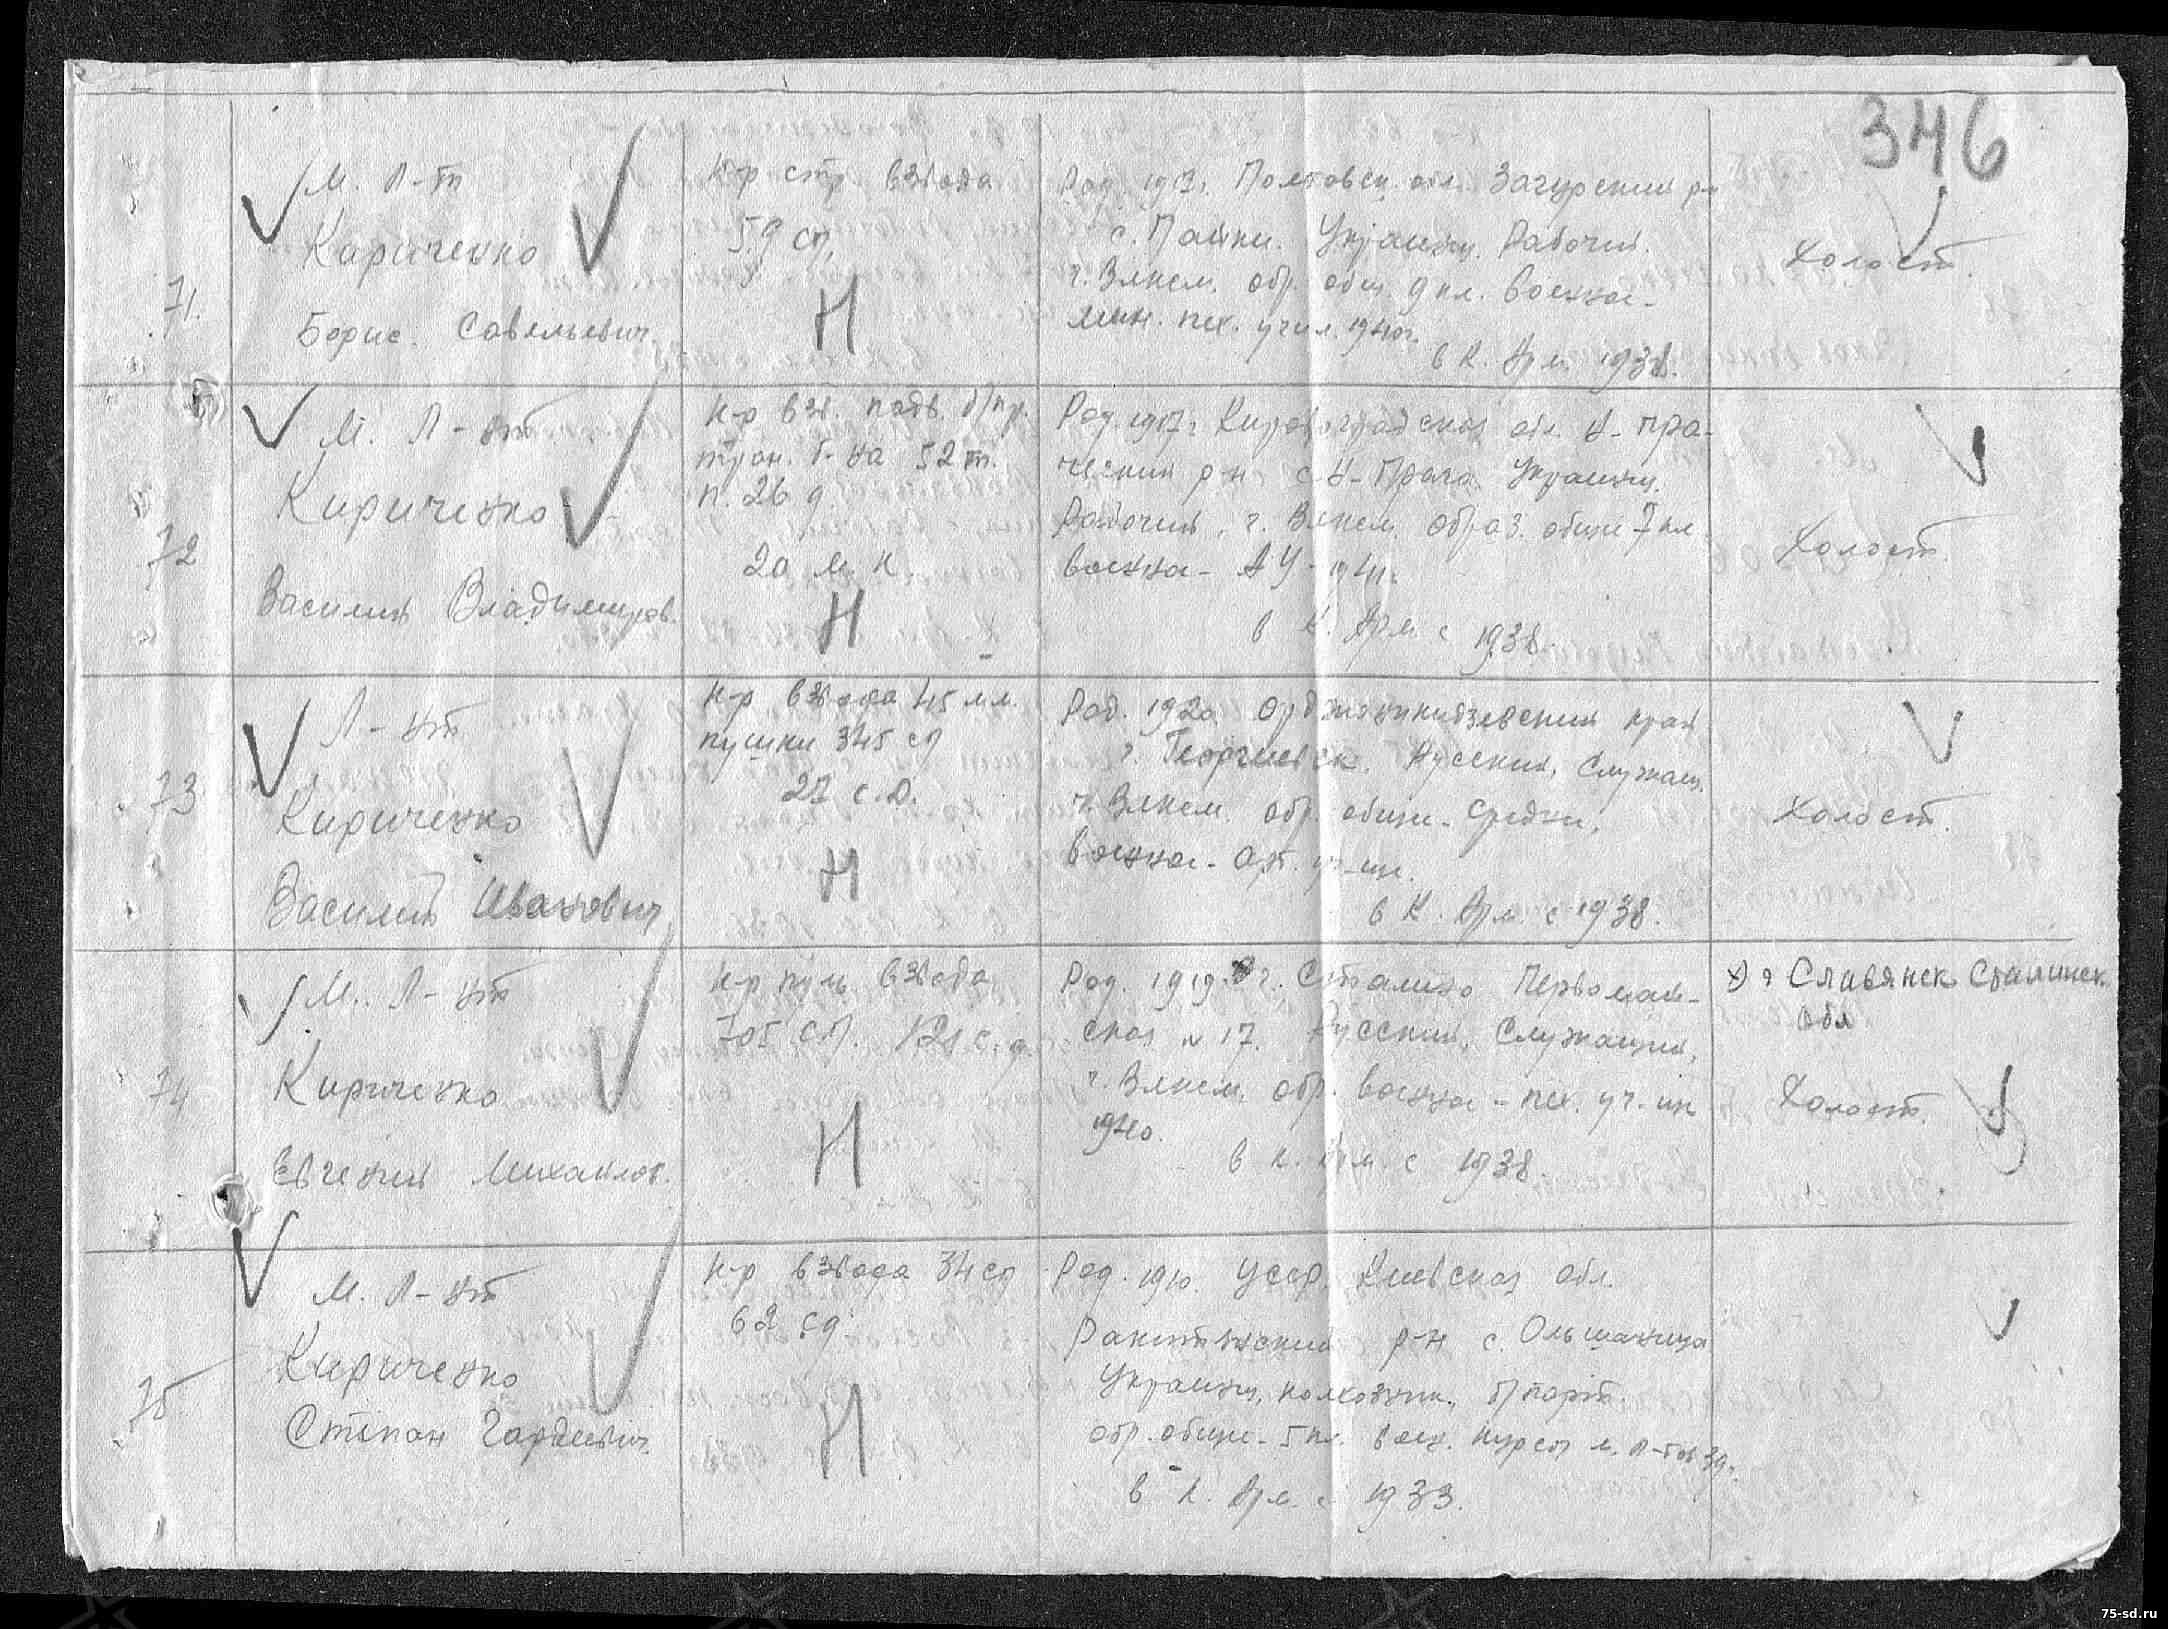 346
71.
М. Л-т
Кириченко
Борис Савельевич
К-р стр. взвода
59 сп,
Н
Род. 1917г. Полтовск. обл. Загурский р-н
с. Пайки. Украинец. Рабочий.
ч. Влксм. обр. общ. 9 кл. военное-
мин. пех. учил. 1940г.
в К. Арм. 1938.
Холост.
72
М. Л-нт
Кириченко
Василий Владимиров.
К-р взв. подв. б/пр.
тран. б-на 52 т.
п. 26 д.
20 м. к.
Н
Род. 1917г Кировоградской обл. Н-пра-
ческий р-н с Н-Прага. Украинец.
Рабочий, ч. Влксм. образ. общее 7 кл
военное - АУ - 1941г.
в К. Арм. с 1938.
Холост.
73
Л-нт
Кириченко
Василий Иванович
К-р взвода 45 мм.
пушки 345 сп
27 с.д.
Н
Род. 1920 Орджоникидзевский край
г. Георгиевск. Русский, Служащ.
ч. Влксм. обр. общее - средн.
военное - Арт. уч-ще.
в К. Арм. с 1938.
Холост.
74
М. Л-нт
Кириченко
Евгений Михайлов.
К-р пул. взвода
705 сп. 121 с. д.
Н
Род. 1919 г. Сталино Первомай-
ская № 17. Русский, Служащий,
ч. Влксм. обр. военное - пех. уч-ще
1940.
в К. Арм. с 1938.
г Славянск Сталинск.
обл
Холост.
75
М. Л-нт
Кириченко
Степан Гордеевич.
К-р взвода 34 сп
62 сд.
Н
Род. 1910. УССР. Киевская обл.
Ракитянский р-н с. Ольшаница
Украинец, колхозник, б/парт.
обр. общее - 5 кл. воен. курсы м. л-тов 39г.
в К. Арм. с 1933.
75-sd.ru